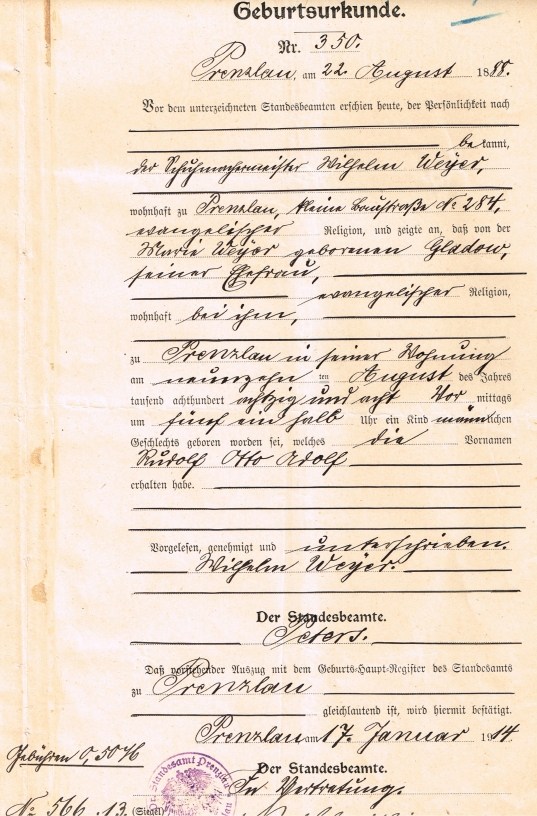 Geburtsurkunde.
Nr. 350.
Prenzlau, am 22. August 1888.
Vor dem unterzeichneten Standesbeamten erschien heute, der Persönlichkeit nach
bekannt,
der Schuhmachermeister Wilhelm Weyer,
wohnhaft zu Prenzlau, kleine Baustraße No 284,
evangelischer Religion, und zeigte an, daß von der
Marie Weyer geborenen Gladow,
seiner Ehefrau,
evangelischer Religion,
wohnhaft bei ihm,
zu Prenzlau in seiner Wohnung
am neunzehn ten August des Jahres
tausend achthundert achtzig und acht Vor mittags
um fünf ein halb Uhr ein Kind männlichen
Geschlechts geboren worden sei, welches die Vornamen
Rudolf Otto Adolf
erhalten habe.
Vorgelesen, genehmigt und unterschrieben.
Wilhelm Weyer.
Der Standesbeamte.
Peters.
Daß vorstehender Auszug mit dem Geburts-Haupt-Register des Standesamts
zu Prenzlau
gleichlautend ist, wird hiermit bestätigt.
Prenzlau am 17. Januar 1914
Gebühren 0,50 M
Der Standesbeamte.
In Vertretung.
No 566.13. (Siegel)
Standesamt Prenzlau